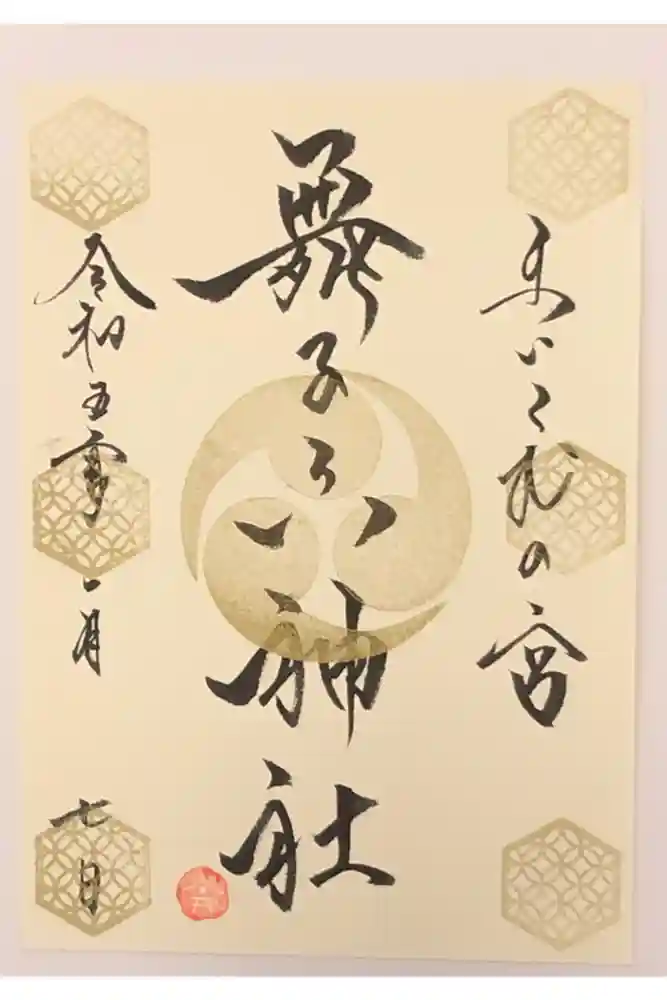 まいこの宮
舞子六神社
令和五年一月
七日